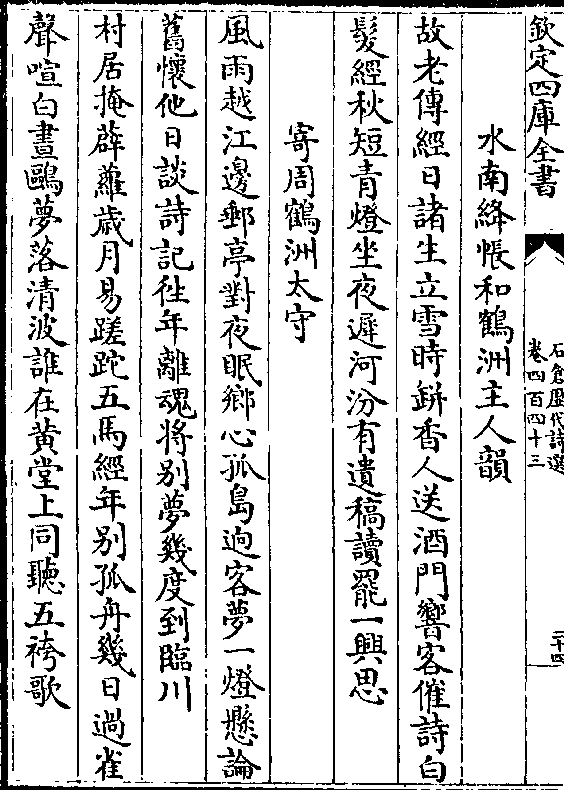 欽定四庫全書
石倉歷代詩選
卷四百四十三
二十四
水南絳帳和鶴洲主人韻
故老傳經日諸生立雪時缾香人送酒門響客催詩白
髮經秋短青燈坐夜遲河汾有遺稿讀罷一興思
寄周鶴洲太守
風雨越江邊郵亭對夜眠鄉心孤島逈客夢一燈懸論
舊懷他日談詩記徃年離魂將别夢幾度到臨川
村居掩薜蘿歲月易蹉跎五馬經年别孤舟幾日過雀
聲喧白晝鷗夢落清波誰在黄堂上同聽五袴歌